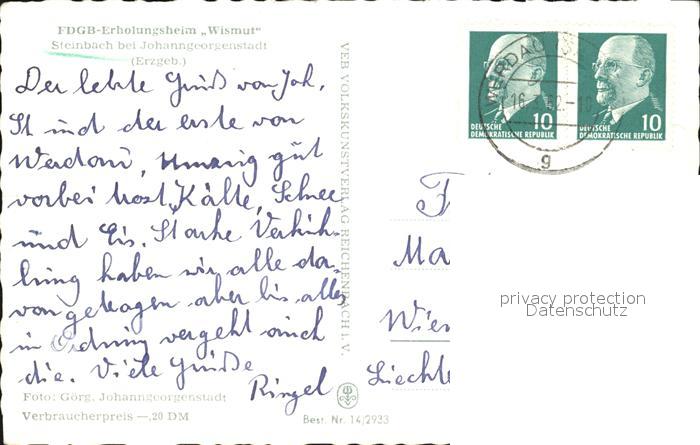 FDGB-Erholungsheim „Wismut"
Steinbach bei Johanngeorgenstadt
(Erzgeb.)
Der letzte Gruß von Joh.
St und der erste von
Werdau, gut
vorbei trotz Kälte, Schnee
und Eis. Starke Verküh-
lung haben wir alle da-
von getragen aber bis alles
in Ordnung vergeht auch
die. Viele Grüße
Ringel
Foto: Görg, Johanngeorgenstadt
Verbraucherpreis —,20 DM
VEB VOLKSKUNSTVERLAG REICHENBACH i. V.
Best. Nr. 14/2933
WERDAU
16
g
10
DEUTSCHE
DEMOKRATISCHE REPUBLIK
10
DEUTSCHE
DEMOKRATISCHE REPUBLIK
F
Ma
Wien
Liechte
privacy protection
Datenschutz